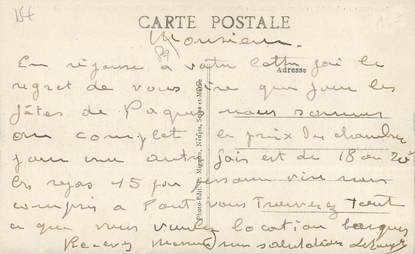 CARTE POSTALE
Monsieur.
Adresse
En réponse à votre lettre j'ai le
regret de vous dire que pour les
fêtes de Paques nous sommes
au complet le prix des chambres
pour une autre fois est de 18 a 20f
les repas 15 par personne vin non
compris a Pont vous trouverez tout
ce que vous voulez location barques
Recevez Monsieur mes salutations
Photo-Edit. Mignon, Nangis, Seine-et-Marne